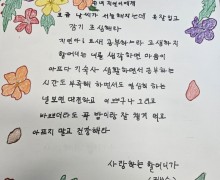 에게
요즘 날씨가 서늘해지는데 옷 잘 입고
감기 조심해라
기연아! 요새 공부하느라 고생하지
할머니는 너를 생각하면 마음이
아프다 기숙사 생활하면서 공부하는
시간도 부족해 하면서도 열심히 하는
널 보면 대견하고 이쁘구나 그리고
바쁘더라도 꼭 밥이랑 잘 챙겨 먹고
아프지 말고 건강해라
사랑하는 할머니가